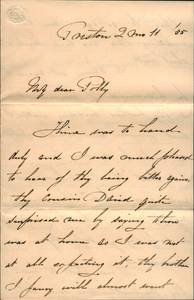 Preston 2 mo 11 '05
My dear Polly
Thine was to hand
duly and I was much pleased
to hear of thy being better again
thy cousin David quite
surprised me by saying thou
was at home as I was not
at all expecting it, thy mother
I fancy will almost want